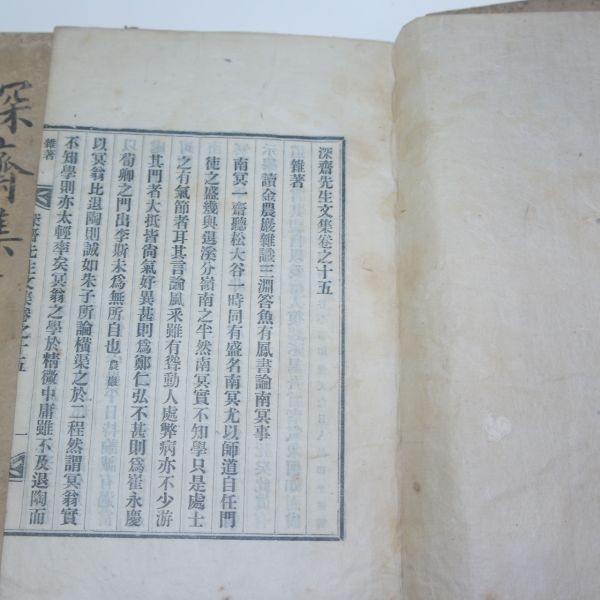 深齋先生文集卷之十五
雜著
讀金農巖雜識三淵答魚有鳳書論南冥事
南冥一齋聽松大谷一時同有盛名南冥尤以師道自任門
徒之盛幾與退溪分嶺南之半然南冥實不知學只是處士
之有氣節者耳其言論風采雖有聳動人處弊病亦不少游
其門者大抵皆尙氣好異甚則爲鄭仁弘不甚則爲崔永慶
以荀卿之門出李斯未爲無所自也農巖
以冥翁比退陶則誠如朱子所論橫渠之於二程然謂冥翁實
不知學則亦太輕率矣冥翁之學於精微中庸雖不及退陶而
雜著
深齋先生文集卷之十五
一
深齋集